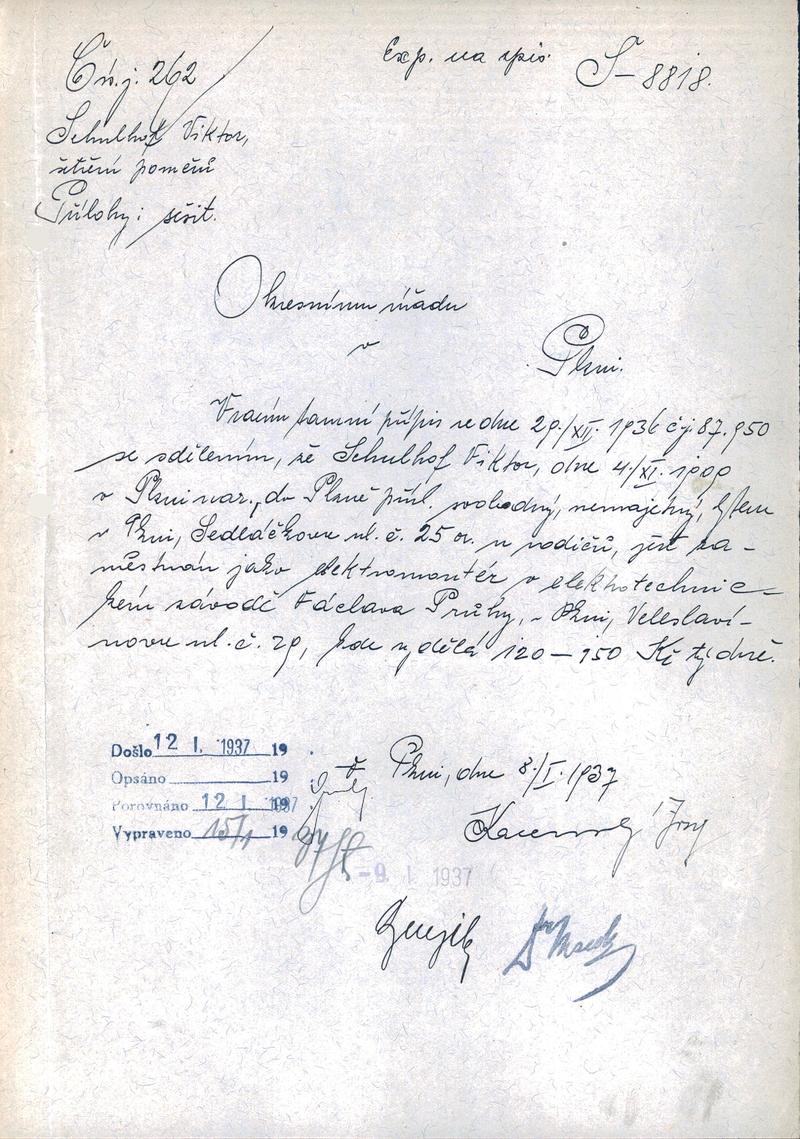 Čís. j. 262
Exp. na spis S-8818.
Schulhof Viktor,
šetření poměrů
Přílohy: sešit.
Okresnímu úřadu
v
Plzni.
Vracím tamní přípis ze dne 29./XII. 1936 čj 87.950
se sdělením, že Schulhof Viktor, dne 4/XI. 1909
v Plzni nar., do Plané přísl. svobodný, nemajetný, bytem
v Plzni, Sedláčkova ul. č. 25 u rodičů, jest za-
městnán jako elektromontér v elektrotechnic-
kém závodě Václava Průhy, v Plzni, Veleslaví-
nova ul. č. 29, kde vydělá 120 — 150 Kč týdně.
Došlo 12 I. 1937 19
Opsáno 19
Porovnáno 12 I. 1937 19
Vypraveno 15/1 19
V Plzni, dne 8./I. 1937
-9. I 1937